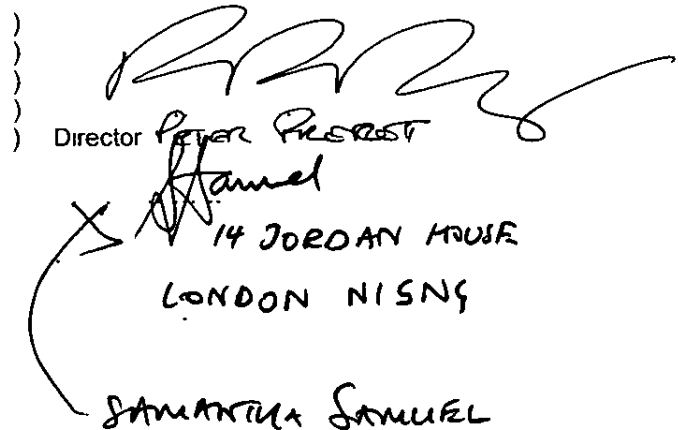 )
)
)
)
) Director PETER
SSamuel
14 JORDAN HOUSE
LONDON N1 5NG
SAMANTHA SAMUEL